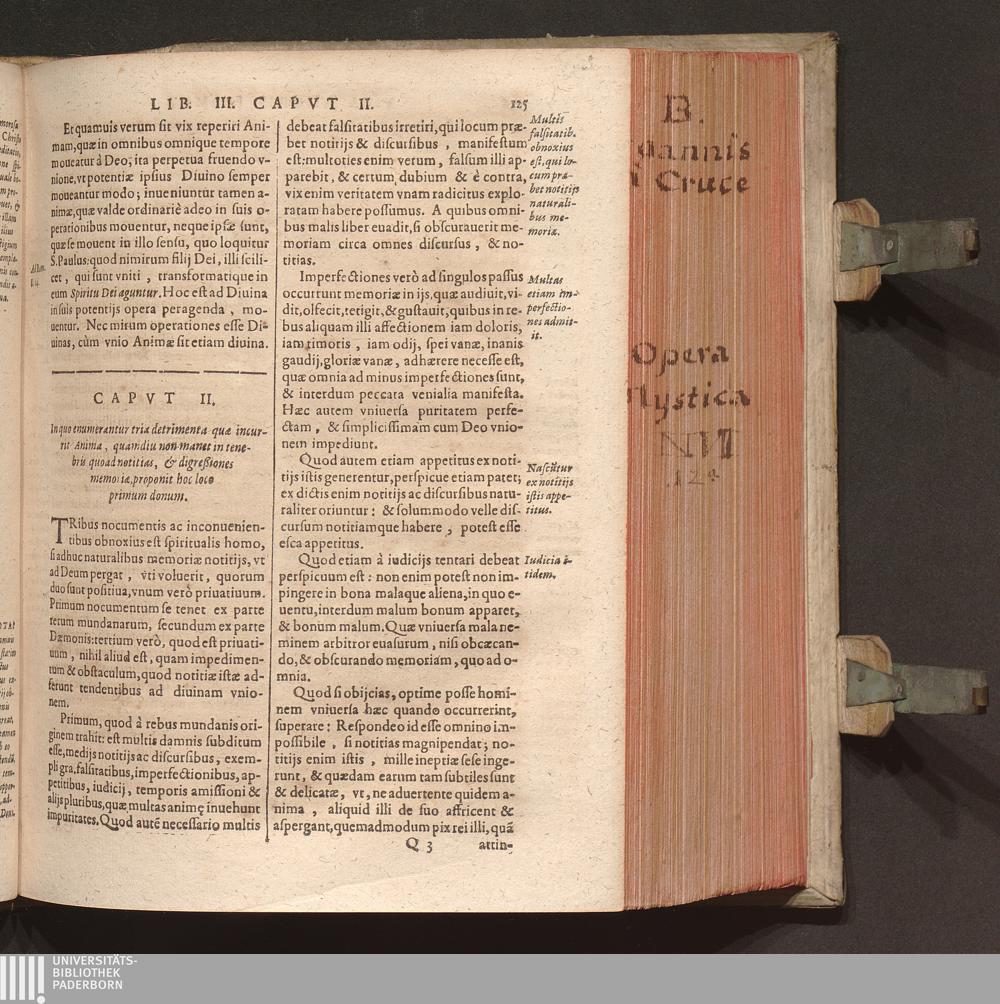 LIB. III. CAPVT II. 125
Et quamuis verum sit vix reperiri Ani-
mam, quæ in omnibus omnique tempore
moueatur à Deo; ita perpetua fruendo v-
nione, vt potentiæ ipsius Diuino semper
moueantur modo; inueniuntur tamen a-
nimæ, quæ valde ordinariè adeo in suis o-
perationibus mouentur, neque ipsæ sunt,
quæ se mouent in illo sensu, quo loquitur
S. Paulus: quod nimirum filij Dei, illi scili-
cet, qui sunt vniti, transformatique in
eum Spiritu Dei aguntur. Hoc est ad Diuina
in suis potentijs opera peragenda, mo-
uentur. Nec mirum operationes esse Di-
uinas, cùm vnio Animæ sit etiam diuina.
CAPVT II.
In quo enumerantur tria detrimenta quæ incur-
rit Anima, quamdiu non manet in tene-
bris quoad notitias, & digreßiones
memoriæ, proponit hoc loco
primum donum.
TRibus nocumentis ac inconuenien-
tibus obnoxius est spiritualis homo,
si adhuc naturalibus memoriæ notitijs, vt
ad Deum pergat, vti voluerit, quorum
duo sunt positiua, vnum verò priuatiuum.
Primum nocumentum se tenet ex parte
rerum mundanarum, secundum ex parte
Dæmonis: tertium verò, quod est priuati-
uum, nihil aliud est, quam impedimen-
tum & obstaculum, quod notitiæ istæ ad-
ferunt tendentibus ad diuinam vnio-
nem.
Primum, quod à rebus mundanis ori-
ginem trahit: est multis damnis subditum
esse, medijs notitijs ac discursibus, exem-
pli gra. falsitatibus, imperfectionibus, ap-
petitibus, iudicij, temporis amissioni &
alijs pluribus, quæ multas animę inuehunt
impuritates. Quod autē necessario multis
debeat falsitatibus irretiri, qui locum præ-
bet notitijs & discursibus, manifestum
est: multoties enim verum, falsum illi ap-
parebit, & certum dubium & è contra,
vix enim veritatem vnam radicitus explo-
ratam habere possumus. A quibus omni-
bus malis liber euadit, si obscurauerit me-
moriam circa omnes discursus, & no-
titias.
Imperfectiones verò ad singulos passus
occurrunt memoriæ in ijs, quæ audiuit, vi-
dit, olfecit, tetigit, & gustauit, quibus in re-
bus aliquam illi affectionem iam doloris,
iam timoris, iam odij, spei vanæ, inanis
gaudij, gloriæ vanæ, adhærere necesse est,
quæ omnia ad minus imperfectiones sunt,
& interdum peccata venialia manifesta.
Hæc autem vniuersa puritatem perfe-
ctam, & simplicissimam cum Deo vnio-
nem impediunt.
Quod autem etiam appetitus ex noti-
tijs istis generentur, perspicue etiam patet;
ex dictis enim notitijs ac discursibus natu-
raliter oriuntur: & solummodo velle dis-
cursum notitiamque habere, potest esse
esca appetitus.
Quod etiam à iudicijs tentari debeat
perspicuum est: non enim potest non im-
pingere in bona malaque aliena, in quo e-
uentu, interdum malum bonum apparet,
& bonum malum. Quæ vniuersa mala ne-
minem arbitror euasurum, nisi obcæcan-
do, & obscurando memoriam, quo ad o-
mnia.
Quod si obijcias, optime posse homi-
nem vniuersa hæc quando occurrerint,
superare: Respondeo id esse omnino im-
possibile, si notitias magnipendat; no-
titijs enim istis, mille ineptiæ sese inge-
runt, & quædam earum tam subtiles sunt
& delicatæ, vt, ne aduertente quidem a-
nima, aliquid illi de suo affricent &
aspergant, quemadmodum pix rei illi, quā
Q 3 attin-
Multis
falsitatib.
obnoxius
est, qui lo-
cum præ-
bet notitijs
naturali-
bus me-
moriæ.
Multas
etiam im-
perfectio-
nes admit-
it.
Nascūtur
ex notitijs
istis appe-
titus.
Iudicia i-
tidem.
B.
oannis
Cruce
Opera
Mystica
UNIVERSITÄTS-
BIBLIOTHEK
PADERBORN